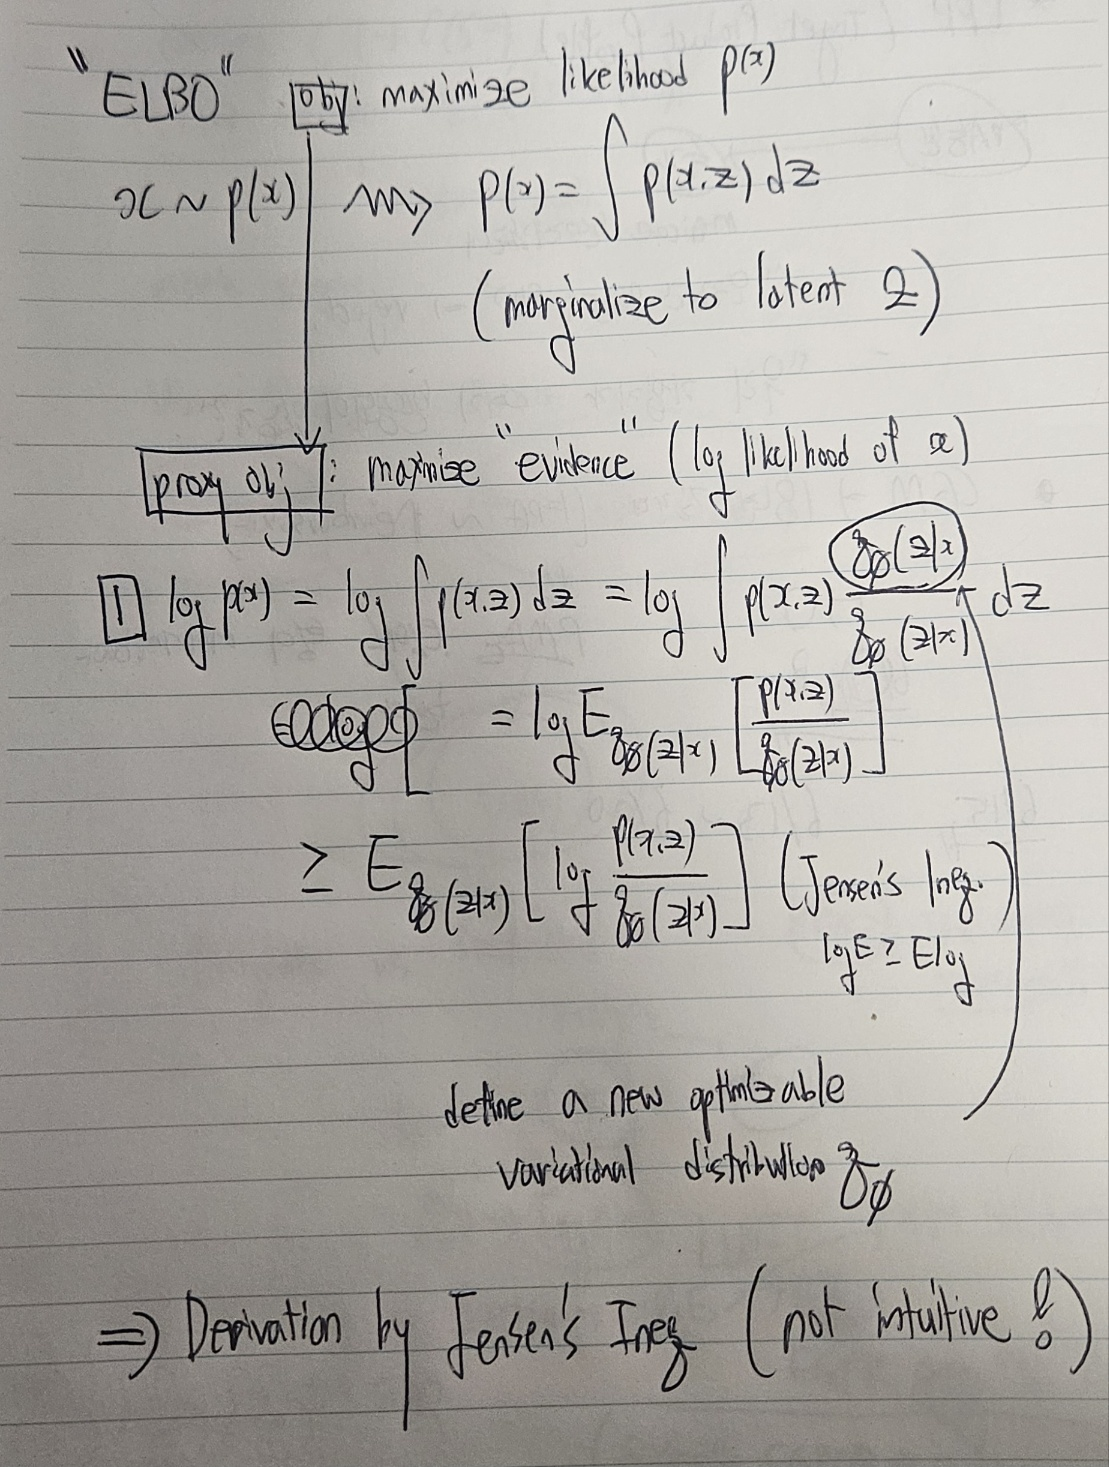 "ELBO" obj: maximize likelihood p(x)
x ~ p(x) ⇝ p(x) = ∫ p(x,z) dz
(marginalize to latent z)
proxy obj : maximise "evidence" (log likelihood of x)
1 log p(x) = log ∫ p(x,z) dz = log ∫ p(x,z) qφ(z|x) / qφ(z|x) dz
= log E qφ(z|x) [ p(x,z) / qφ(z|x) ]
≥ E qφ(z|x) [ log p(x,z) / qφ(z|x) ] (Jensen's Ineq.)
log E ≥ E log
define a new optimizable
variational distribution qφ
⇒ Derivation by Jensen's Ineq (not intuitive !)